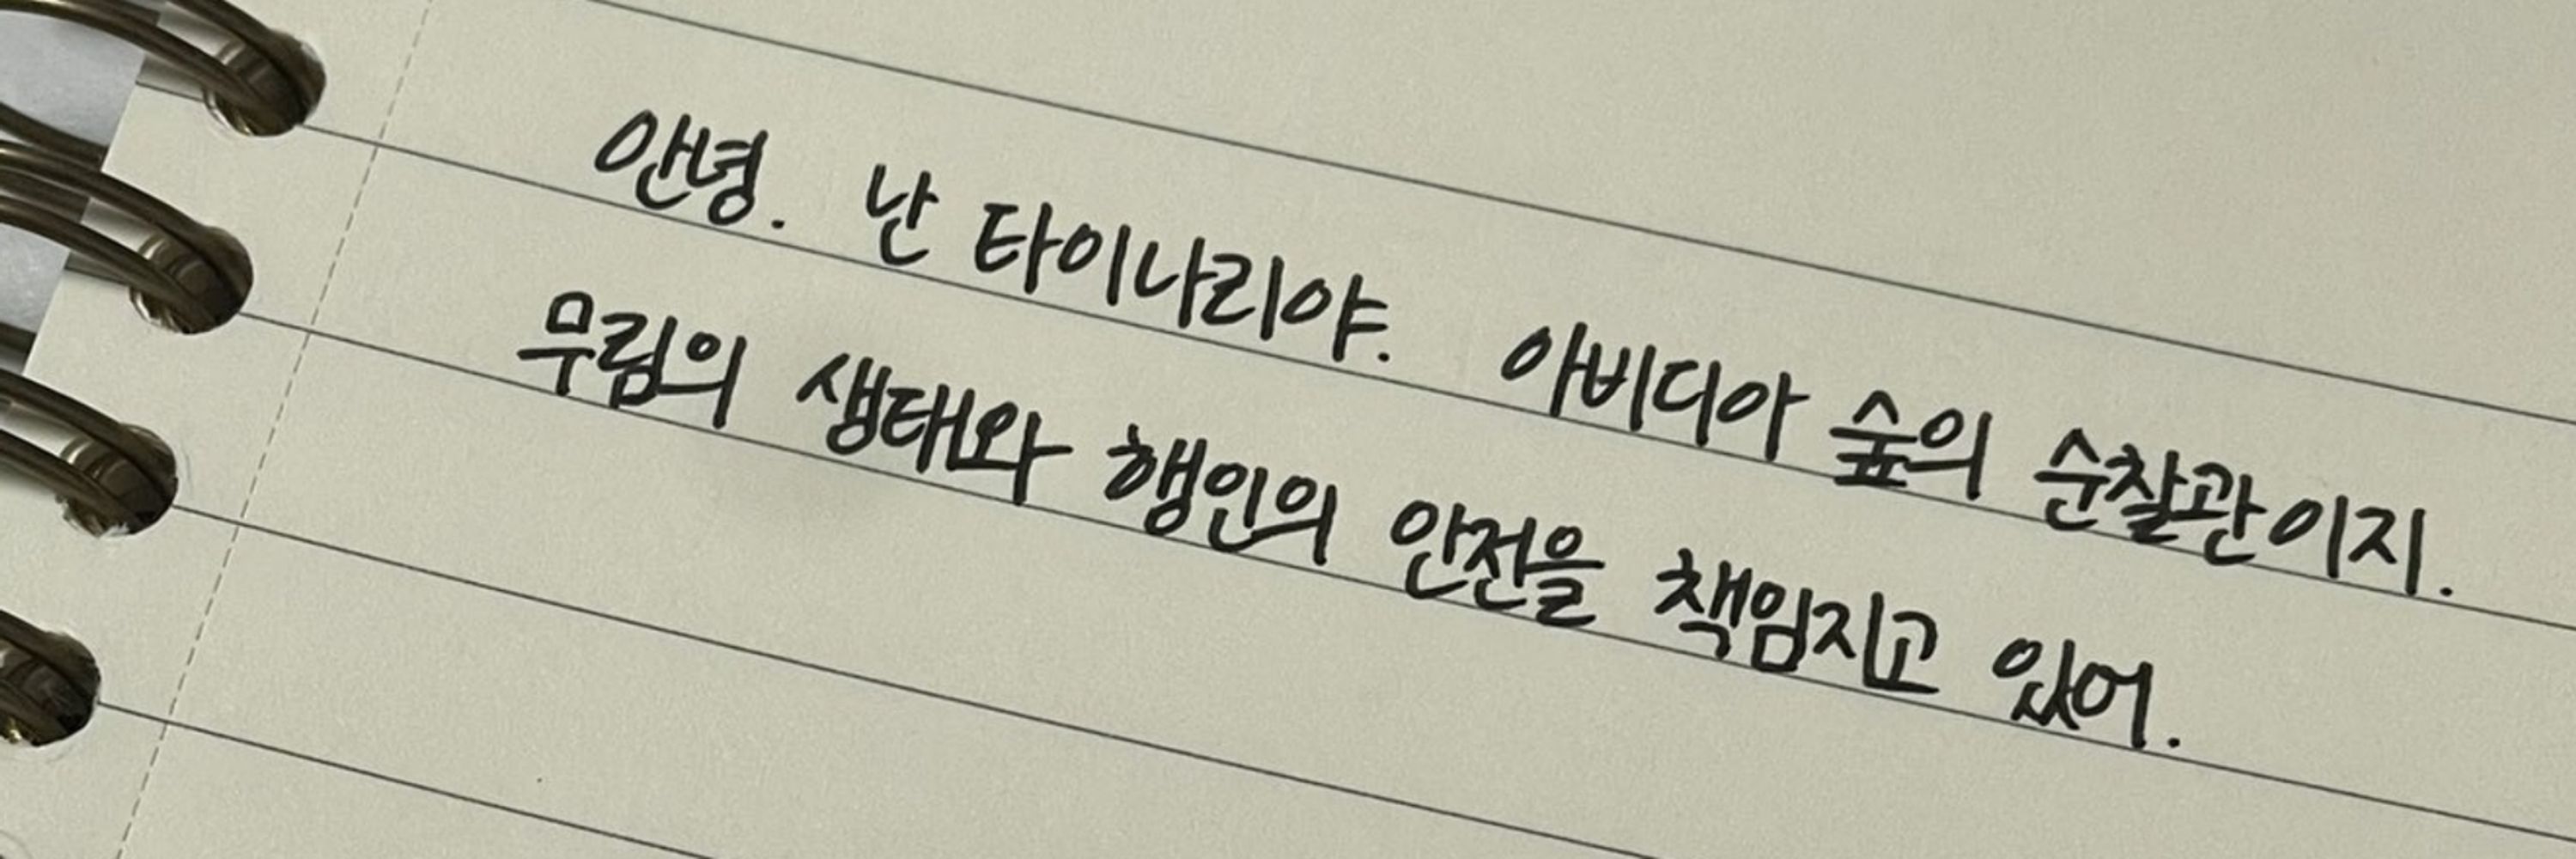 안녕. 난 타이나리야. 아비디아 숲의 순찰관이지.
무림의 생태와 행인의 안전을 책임지고 있어.